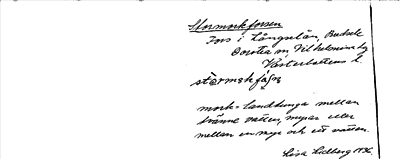 Stormorkforsen
Fors i Långselån, Risbäck
Dorotea o. Vilhelmina
Västerbottens l.
mork = landtunga mellan
tvänne vatten, myrar eller
mellan en myr och ett vatten.
Lisa Lidberg 1936